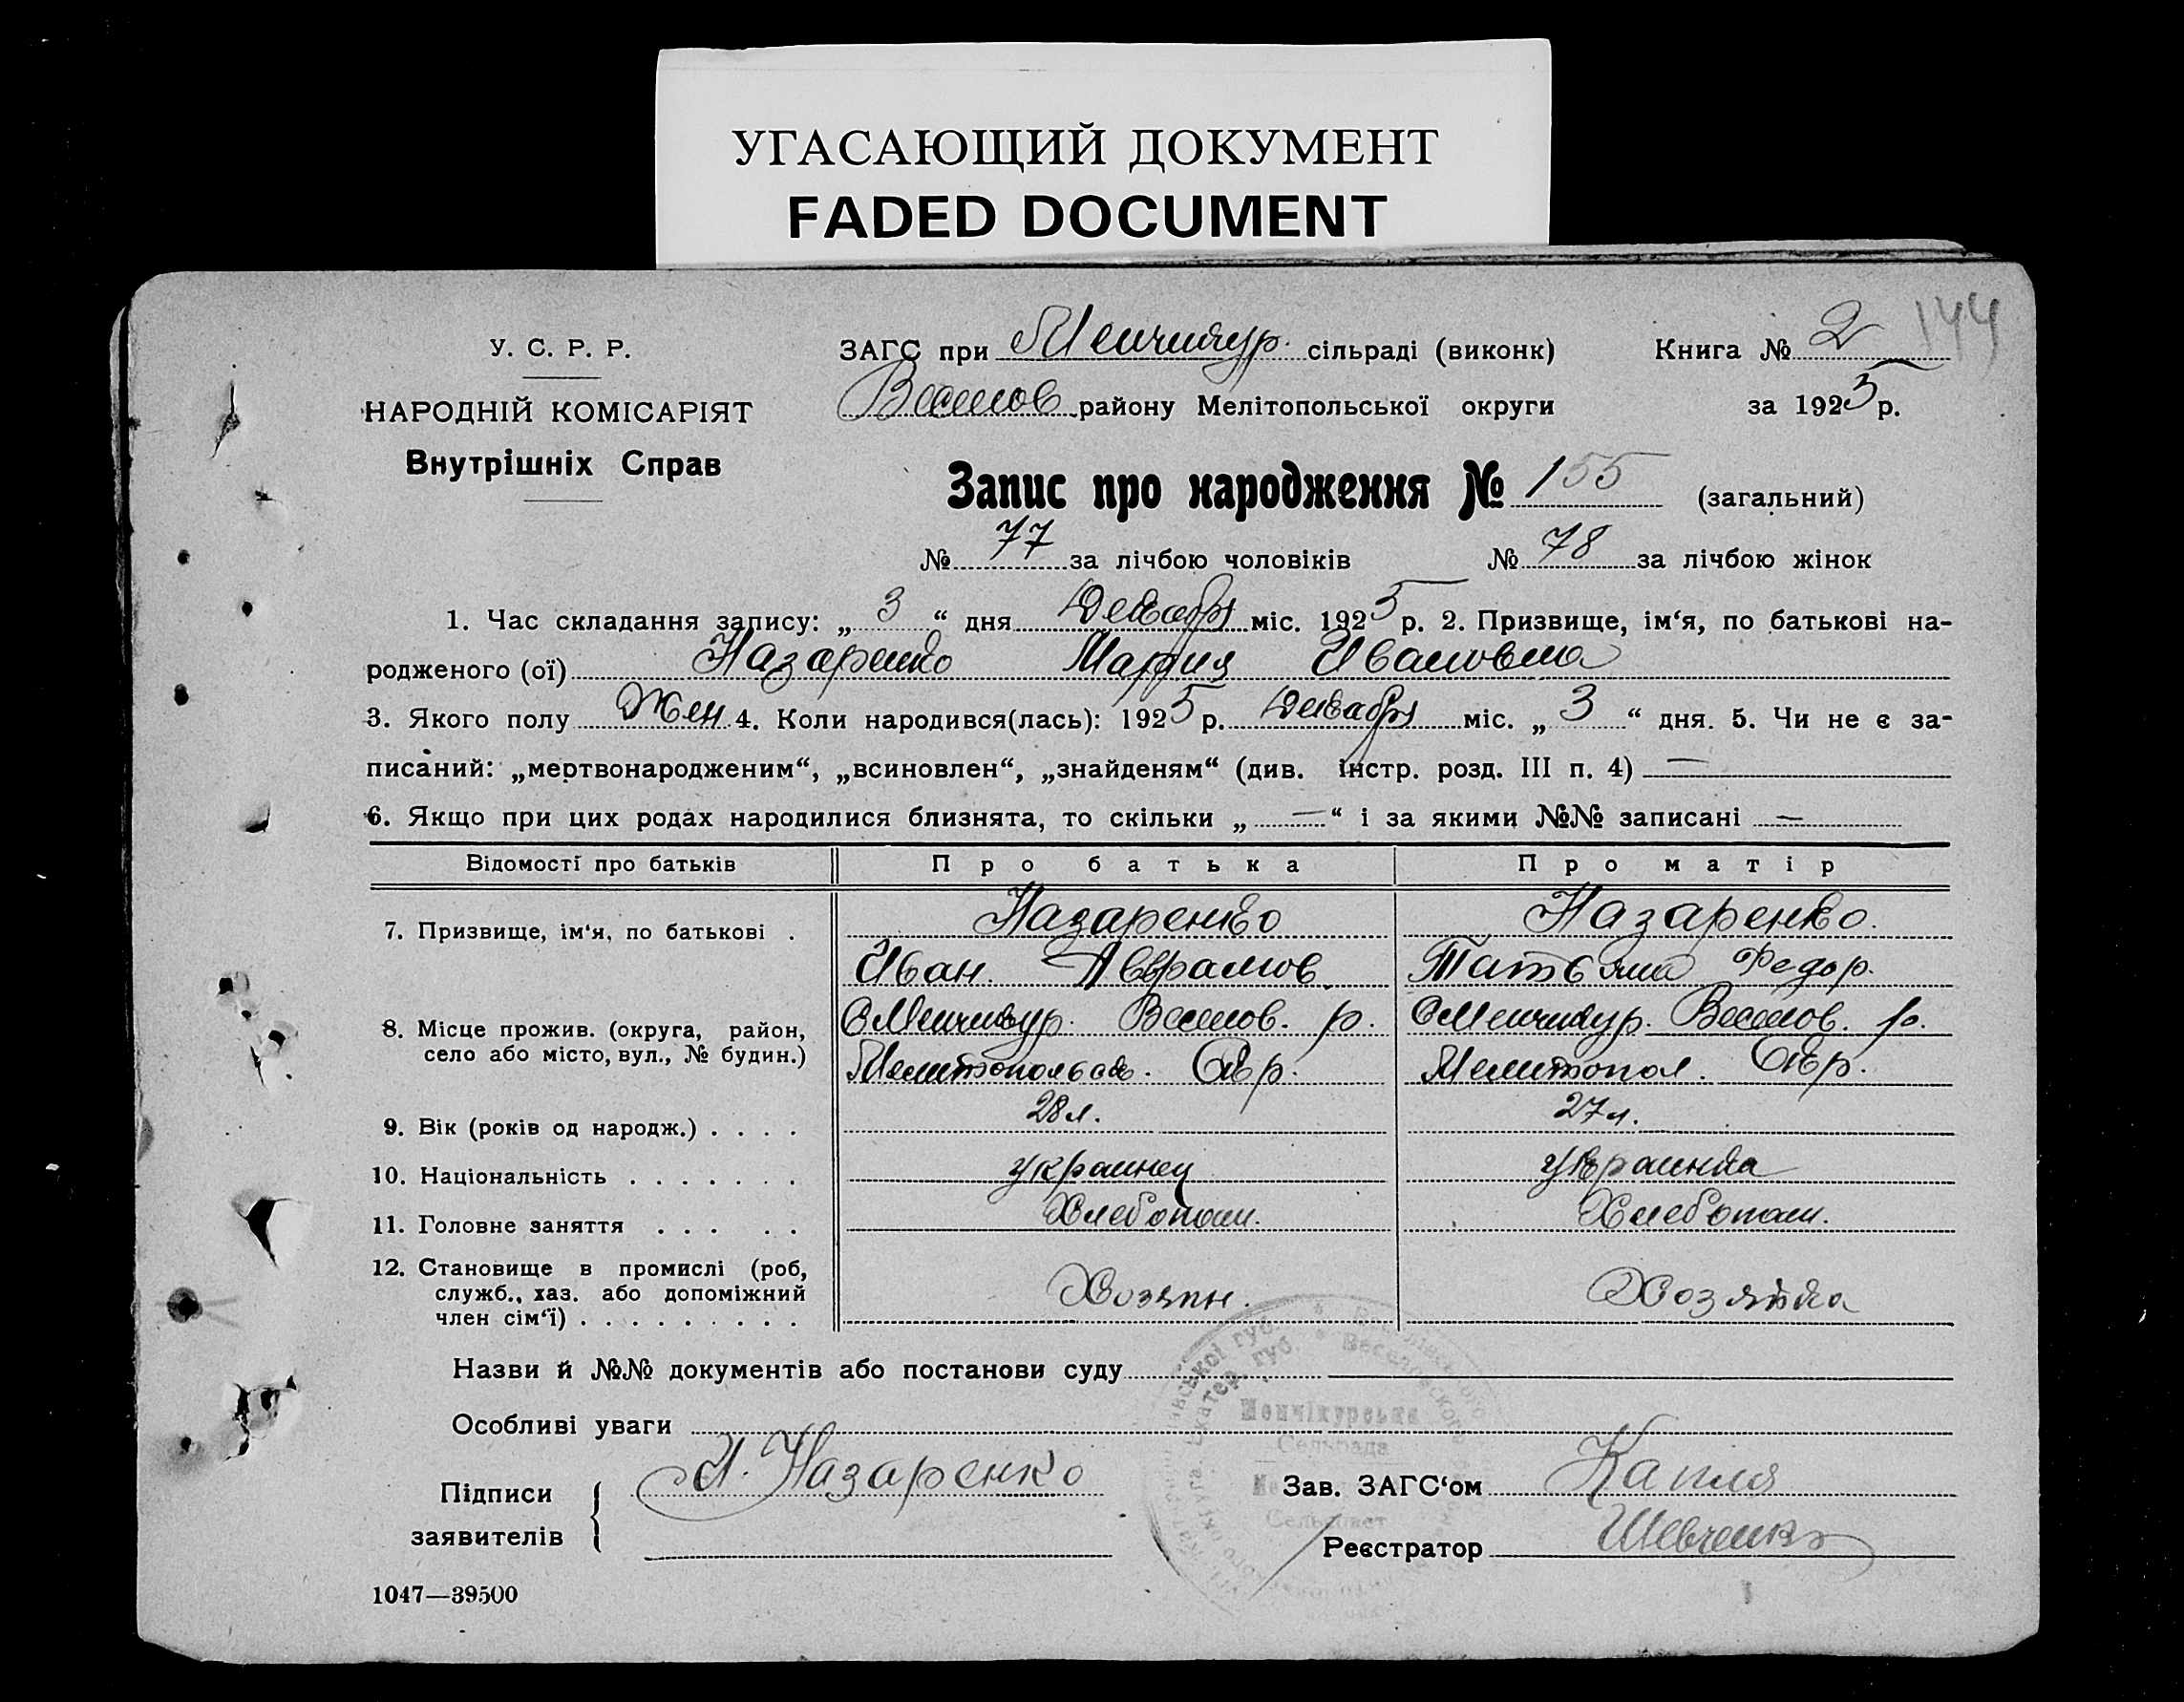 УГАСАЮЩИЙ ДОКУМЕНТ
FADED DOCUMENT
144
У. С. Р. Р.
НАРОДНІЙ КОМІСАРІЯТ
Внутрішніх Справ
ЗАГС при Менчикур. сільраді (виконк) Книга № 2
Веселов району Мелітопольської округи за 1925 р.
Запис про народження № 155 (загальний)
№ 77 за лічбою чоловіків № 78 за лічбою жінок
1. Час складання запису: „ 3 “ дня Декабря міс. 1925 р. 2. Призвище, ім‘я, по батькові на-
родженого (ої) Назаренко Мария Ивановна
3. Якого полу Жен 4. Коли народився(лась): 1925 р. Декабря міс. „ 3 “ дня. 5. Чи не є за-
писаний: „мертвонародженим“, „всиновлен“, „знайденям“ (див. інстр. розд. III п. 4) —
6. Якщо при цих родах народилися близнята, то скільки „ — “ і за якими №№ записані —
Відомості про батьків Про батька Про матір
7. Призвище, ім‘я, по батькові . Назаренко Назаренко.
Иван. Аврамов. Татьяна Федор.
8. Місце прожив. (округа, район, село або місто, вул., № будин.) С Менчикур. Веселов. р. С Менчикур. Веселов. р.
Мелитопольск. Окр. Мелитопол. Окр.
9. Вік (років од народж.) . . . . 28 л. 27 л.
10. Національність . . . . . . . украинец украинка
11. Головне заняття . . . . . Хлебопаш. Хлебопаш.
12. Становище в промислі (роб, служб., хаз. або допоміжний член сім‘ї) . . . . . . . . . Хозяин. Хозяйка
Назви й №№ документів або постанови суду
Особливі уваги
Менчікурська
Сельрада
Підписи заявителів И. Назаренко
Зав. ЗАГС‘ом Капля
Сельсовет
Реєстратор Шевченко
1047—39500